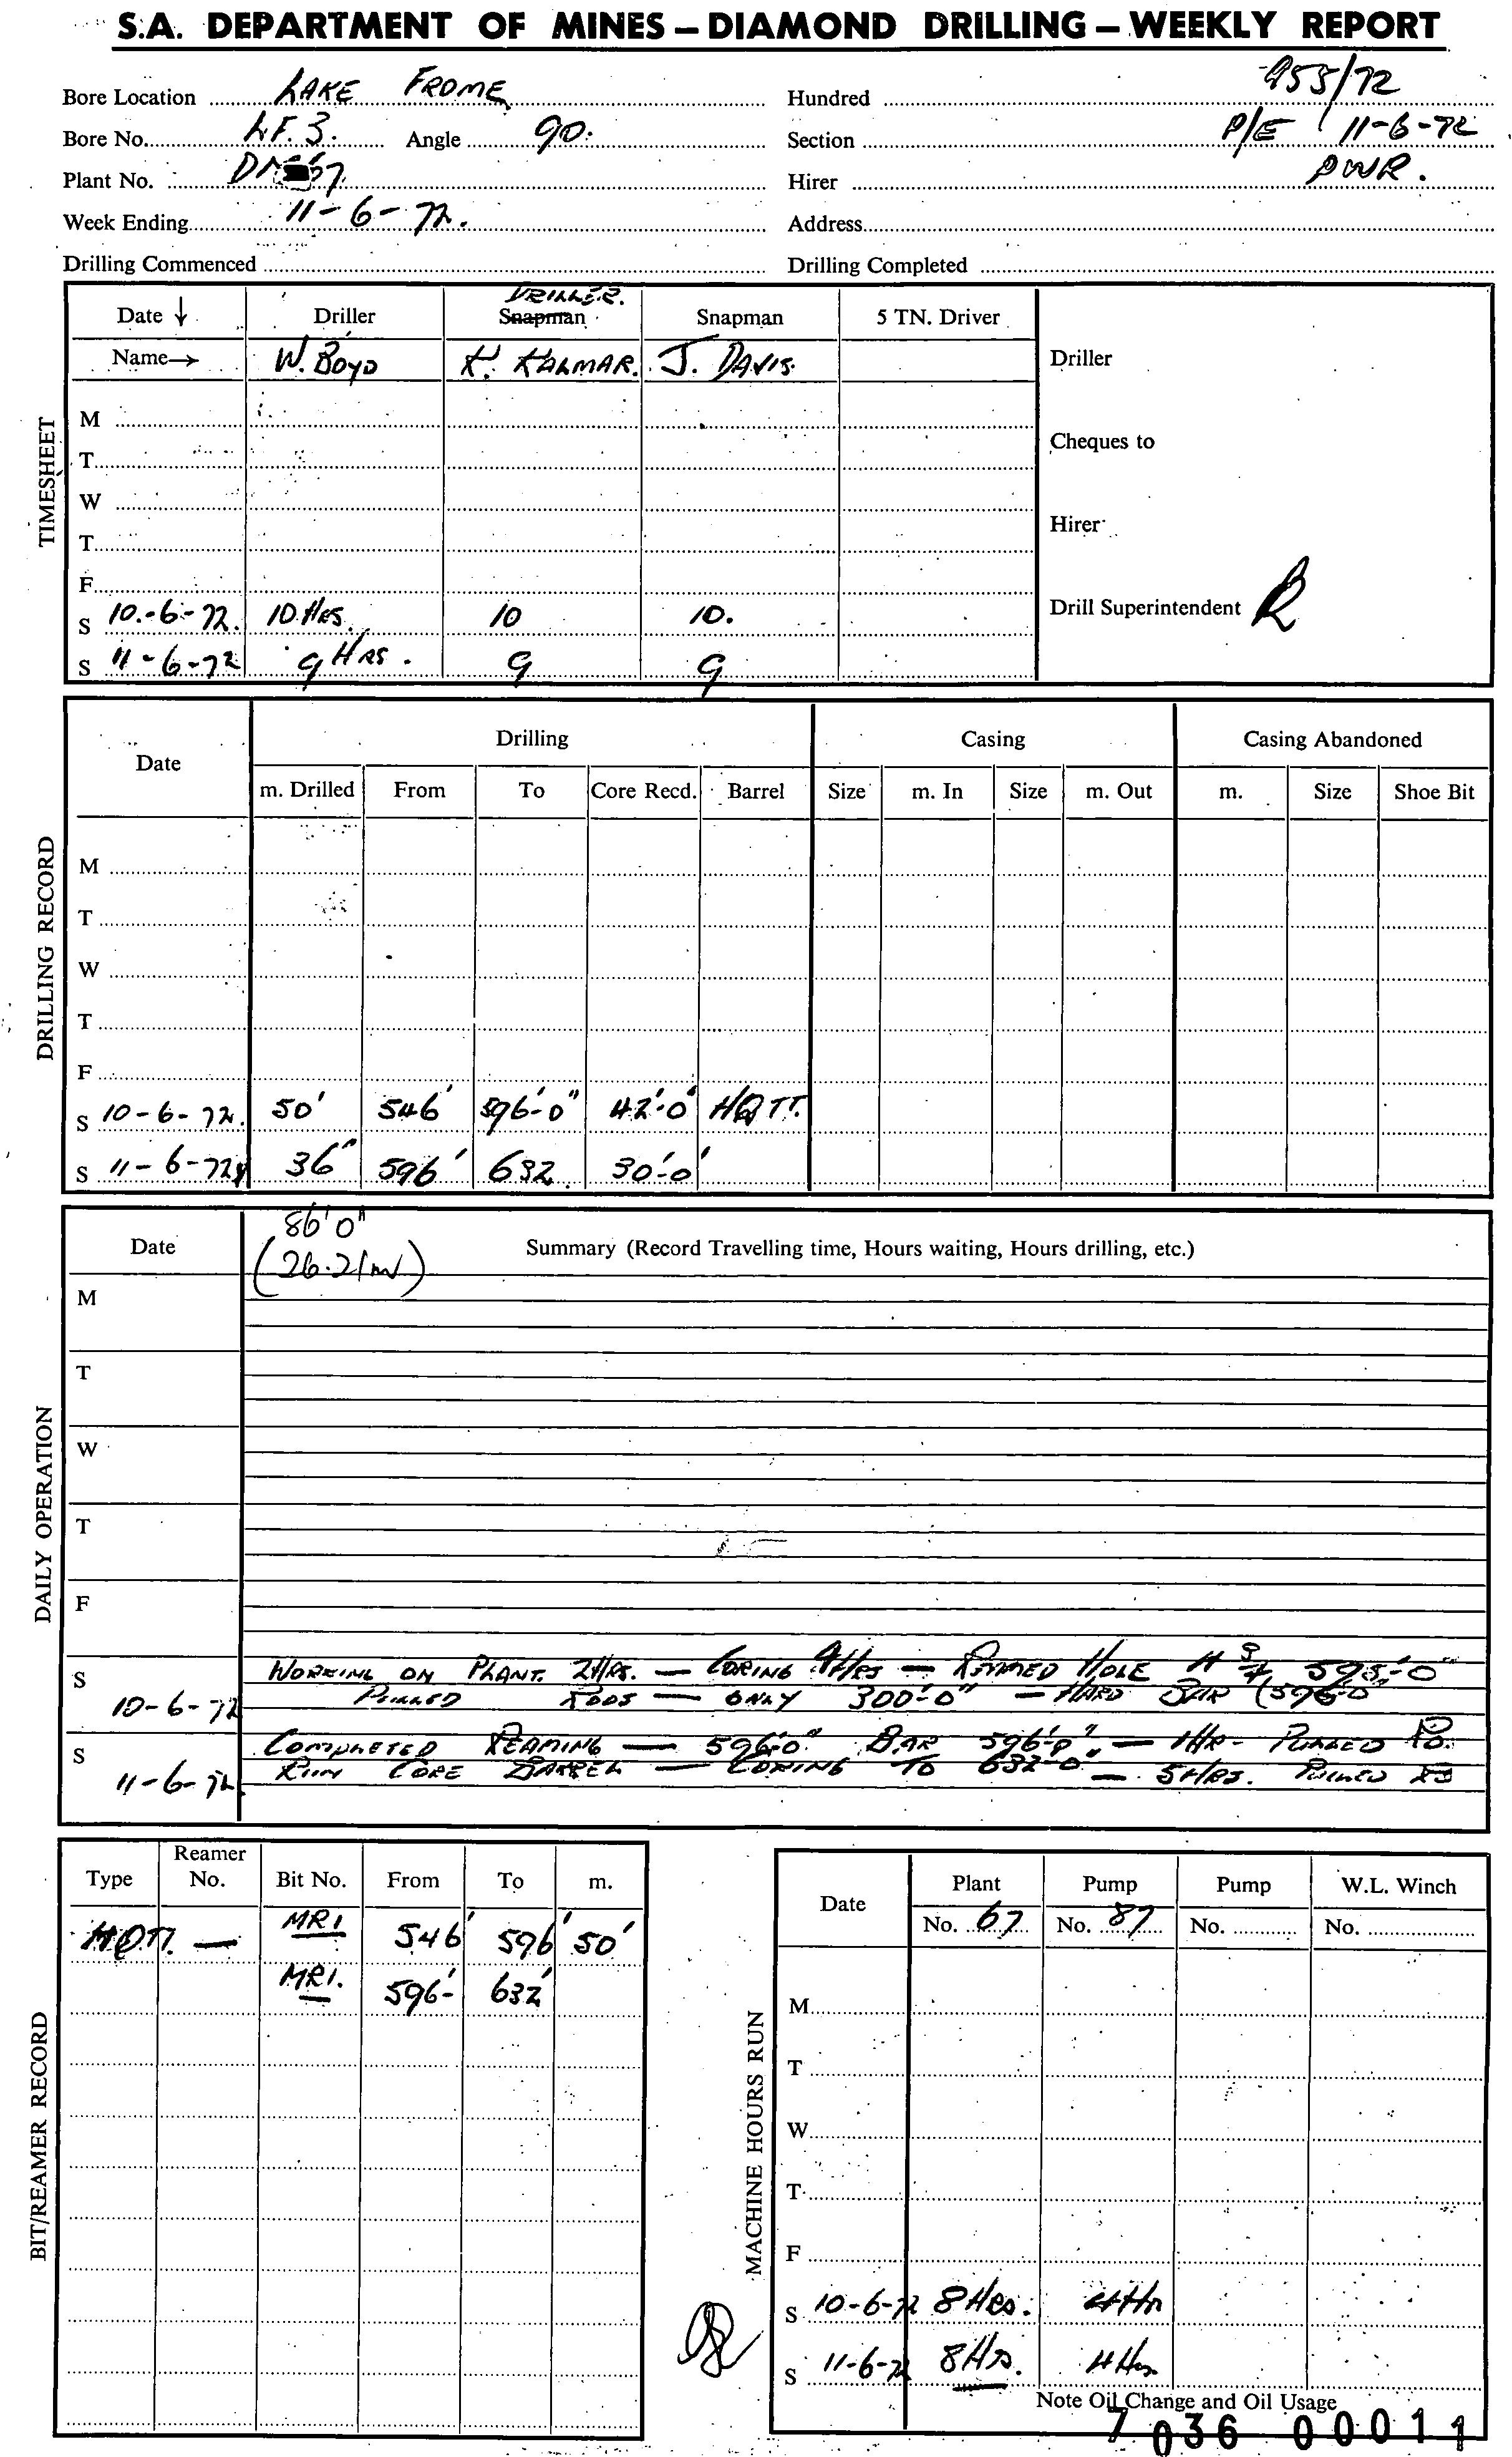 S.A. DEPARTMENT OF MINES – DIAMOND DRILLING – WEEKLY REPORT
955/72
Bore Location LAKE FROME Hundred
Bore No. LF. 3. Angle 90. Section P/E 11-6-72
Plant No. Hirer DWR.
Week Ending 11-6-72. Address
Drilling Commenced Drilling Completed
TIMESHEET
DRILLER.
Date ↓ Driller Snapman Snapman 5 TN. Driver
Name→ W. BOYD K. KALMAR. J. DAVIS. Driller
M
Cheques to
T
W
Hirer
T
F
S 10-6-72. 10 HRS. 10 10. Drill Superintendent R
S 11-6-72 9 HRS. 9 9
DRILLING RECORD
Date Drilling Casing Casing Abandoned
m. Drilled From To Core Recd. Barrel Size m. In Size m. Out m. Size Shoe Bit
M
T
W
T
F
S 10-6-72. 50' 546' 596'-0" 42'-0" HQTT.
S 11-6-72 36" 596' 632 30'-0'
DAILY OPERATION
86'0"
Date Summary (Record Travelling time, Hours waiting, Hours drilling, etc.)
(26.21m)
M
T
W
T
F
S WORKING ON PLANT. 2HRS. — CORING 4HRS — REAMED HOLE 595'-0"
10-6-72 PULLED RODS — ONLY 300'-0" — HARD BAR (596-0"
S COMPLETED REAMING — 596-0". BAR 596'-0" — 1HR- PULLED RD.
11-6-72. RUN CORE BARREL — CORING TO 632-0". — 5HRS. PULLED
BIT/REAMER RECORD
Type Reamer No. Bit No. From To m.
HQTT. — MR1 546' 596' 50'
MR1. 596'- 632'
MACHINE HOURS RUN
Date Plant Pump Pump W.L. Winch
No. 67 No. 87 No. No.
M
T
W
T
F
S 10-6-72 8 HRS. 4 Hr
S 11-6-72 8 Hrs. 4 Hrs.
Note Oil Change and Oil Usage
7036 00011